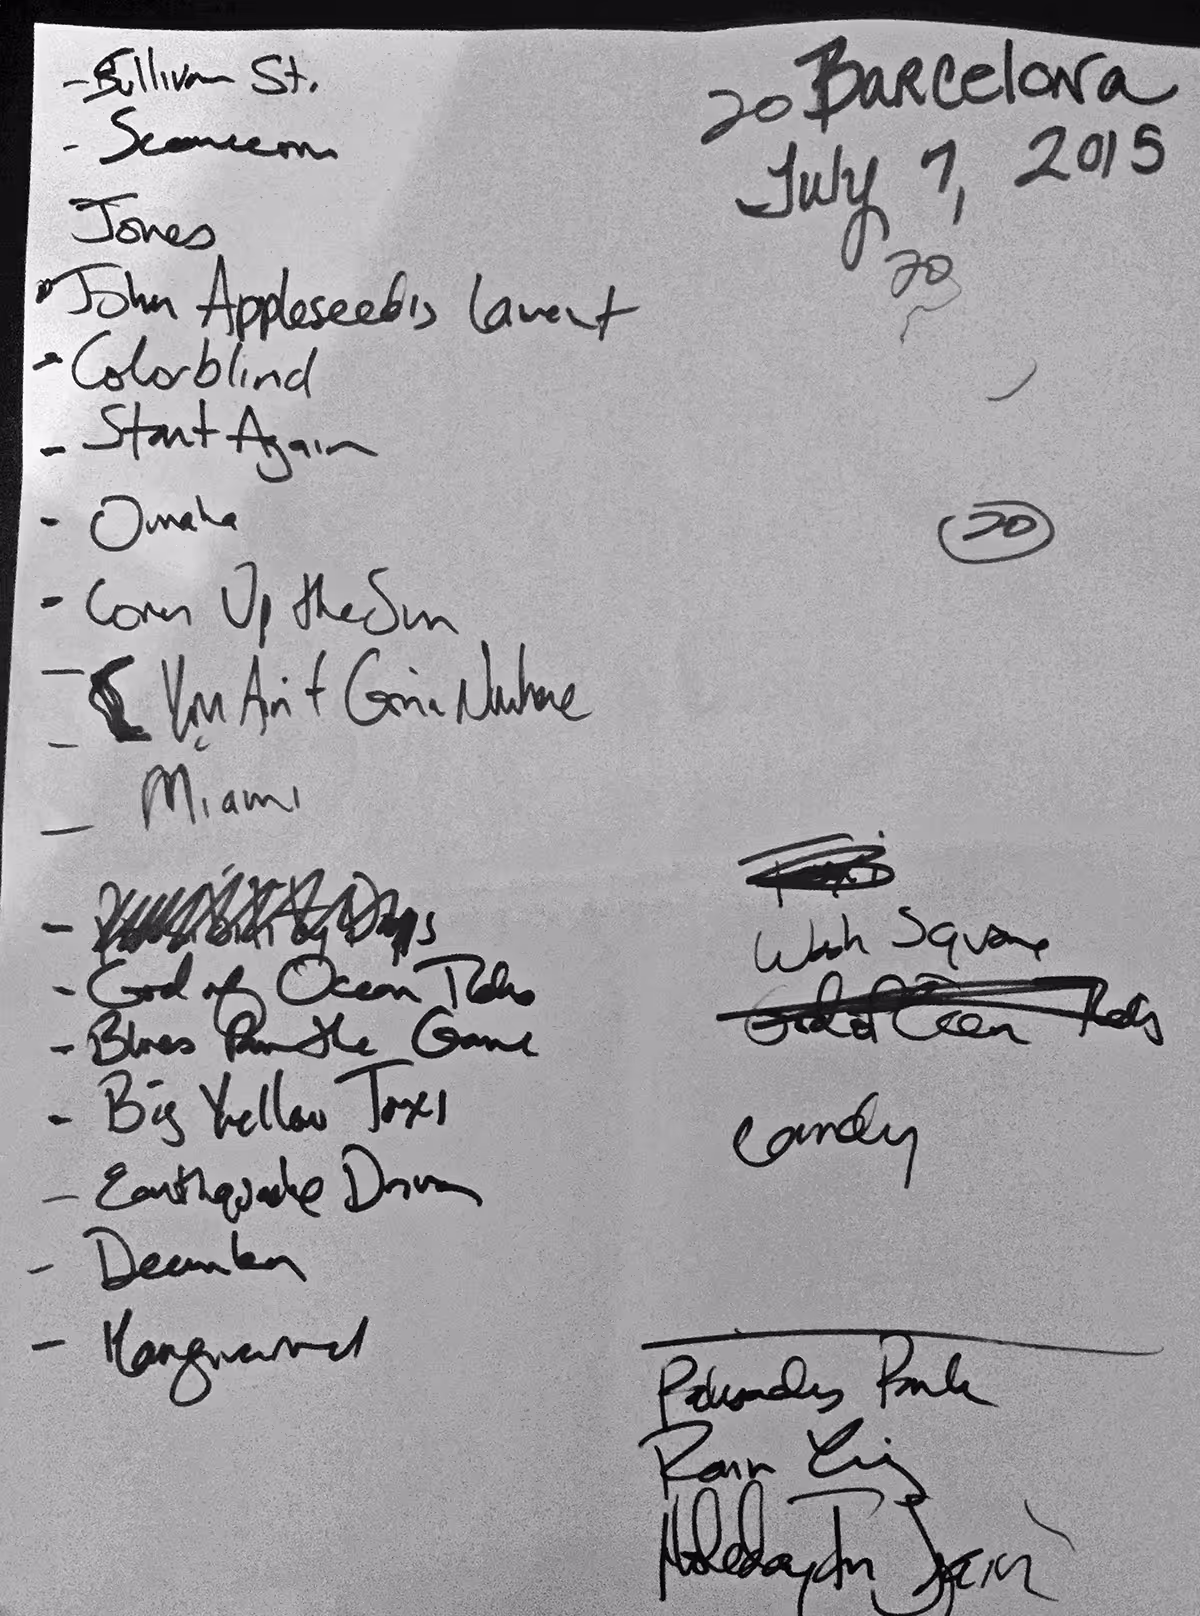 - Sullivan St.
- Scarecrow
Jones
- John Appleseed's Lament
- Colorblind
- Start Again
- Omaha
- Comes Up the Sun
- You Ain't Goin Nowhere
- Miami
- God of Ocean Tides
- Blues Run the Game
- Big Yellow Taxi
- Earthquake Driver
- December
- Hanginaround
20 Barcelona
July 7, 2015
20
20
Taxi
Wash Square
God of Ocean Tides
Candy
Palisades Park
Rain King
Holiday In Spain